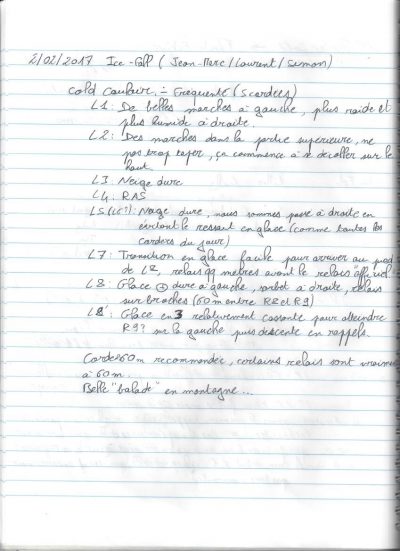 2/02/2017 Ice-Fall (Jean-Marc/Laurent/Simon)
Cold Couloir :- Fréquenté (5 cordées)
L1: De belles marches à gauche, plus raide et
plus humide à droite.
L2: Des marches dans la partie superieure, ne
pas trop taper, ça commence à se décoller sur le
haut
L3: Neige dure
L4: RAS
L5(L6?): Neige dure, nous sommes passé à droite en
évitant le ressaut en glace (comme toutes les
cordées du jour)
L7: Transition en glace facile pour arriver au pied
de L8, relais qq metres avant le relais "officiel"
L8: Glace + dure à gauche, sorbet à droite, relais
sur broches (60m entre R8 et R9)
L8': Glace en 3 relativement cassante pour atteindre
R9? sur la gauche puis descente en rappels.
Corde 60m recommandée, certains relais sont vraiment
à 60m.
Belle "balade" en montagne...